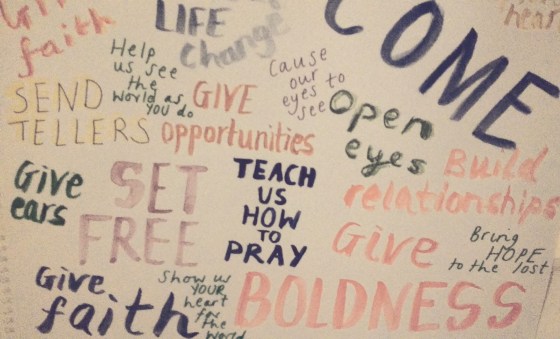 LIFE
change
COME
hear
Give
faith
Help
us see
the
world as
you do
SEND
TELLERS
GIVE
opportunities
Cause
our
eyes to
see
Open
eyes
Build
relationships
Give
ears
SET
FREE
TEACH
US
HOW
TO
PRAY
Give
BOLDNESS
Bring
HOPE
to the lost
Give
faith
Show us
YOUR
heart
for
the
world